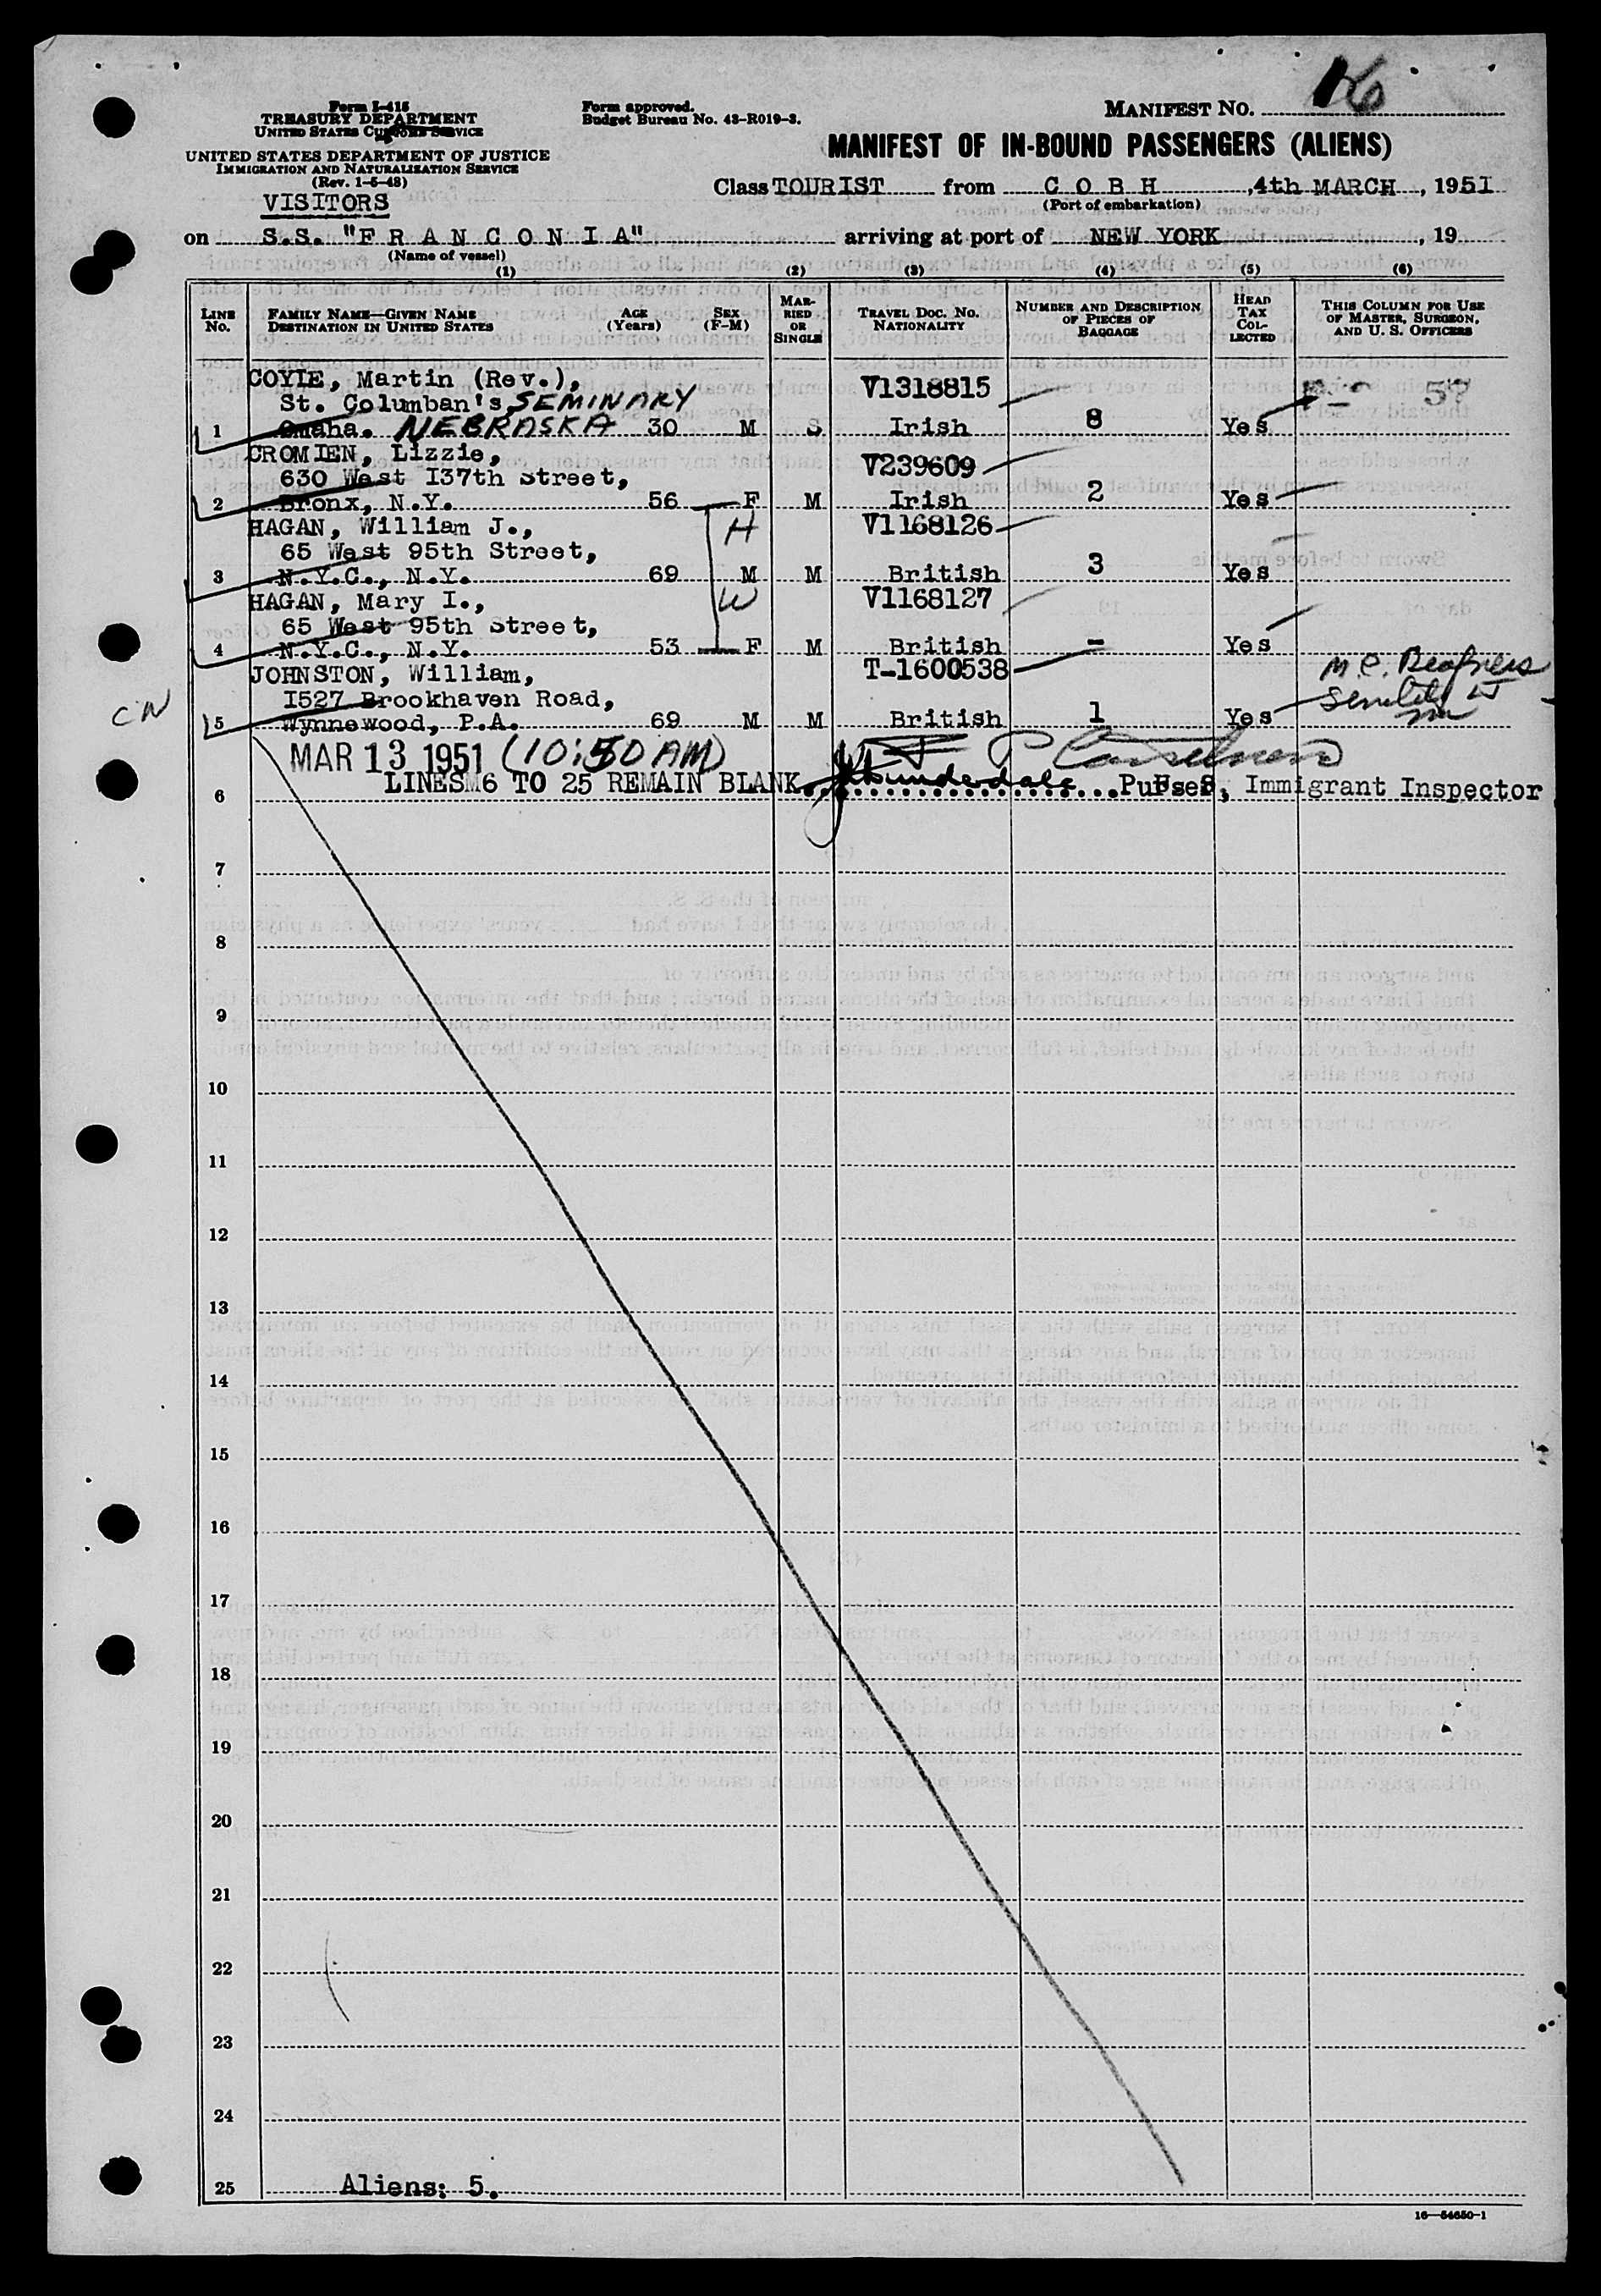 MANIFEST NO. 16
Form I-415
TREASURY DEPARTMENT
UNITED STATES CUSTOMS SERVICE
UNITED STATES DEPARTMENT OF JUSTICE
IMMIGRATION AND NATURALIZATION SERVICE
(Rev. 1-5-48)
VISITORS
Form approved.
Budget Bureau No. 43-R019-3.
MANIFEST OF IN-BOUND PASSENGERS (ALIENS)
Class TOURIST from C O B H, 4th MARCH, 1951
(Port of embarkation)
on S.S. "F R A N C O N I A" arriving at port of NEW YORK, 19
(Name of vessel)
(1) (2) (3) (4) (5) (6)
LINE No. FAMILY NAME—GIVEN NAME DESTINATION IN UNITED STATES AGE (Years) SEX (F-M) MARRIED OR SINGLE TRAVEL DOC. NO. NATIONALITY NUMBER AND DESCRIPTION OF PIECES OF BAGGAGE HEAD TAX COLLECTED THIS COLUMN FOR USE OF MASTER, SURGEON, AND U. S. OFFICERS
COYLE, Martin (Rev.), V1318815 57
St. Columban's SEMINARY
1 Omaha. NEBRASKA 30 M S Irish 8 Yes
CROMIEN, Lizzie, V239609
630 West 137th Street,
2 Bronx, N.Y. 56 F M Irish 2 Yes
HAGAN, William J., H V1168126
65 West 95th Street,
3 N.Y.C., N.Y. 69 M M British 3 Yes
HAGAN, Mary I., W V1168127
65 West 95th Street,
4 N.Y.C., N.Y. 53 F M British - Yes
JOHNSTON, William, T-1600538 M.C. Deafness
1527 Brookhaven Road, Senility
CN 5 Wynnewood, P.A. 69 M M British 1 Yes
MAR 13 1951 (10:50 AM)
6 LINES 6 TO 25 REMAIN BLANK Purser, Immigrant Inspector
7
8
9
10
11
12
13
14
15
16
17
18
19
20
21
22
23
24
25 Aliens: 5.
16—54650-1